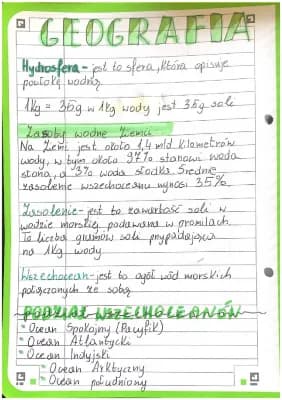 GEOGRAFIA
Hydrosfera - jest to sfera, która opisuje
powłokę wodną.
1kg = 35g w 1kg wody jest 35g soli
Zasoby wodne Ziemi
Na Ziemi jest około 1,4 mld kilometrów
wody, w tym około 97% stanowi woda
słona, a 3% woda słodka. Średnie
zasolenie wszechoceanu wynosi 35%.
Zasolenie - jest to zawartość soli w
wodzie morskiej podawana w promilach.
To liczba gramów soli przypadająca
na 1kg wody
Wszechocean - jest to ogół wód morskich
połączonych ze sobą
PODZIAŁ WSZECHOCEANÓW
Ocean Spokojny (Pacyfik)
Ocean Atlantycki
Ocean Indyjski
Ocean Arktyczny
Ocean południowy